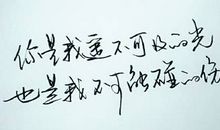 你是我遥不可及的光
也是我不可能碰的伤